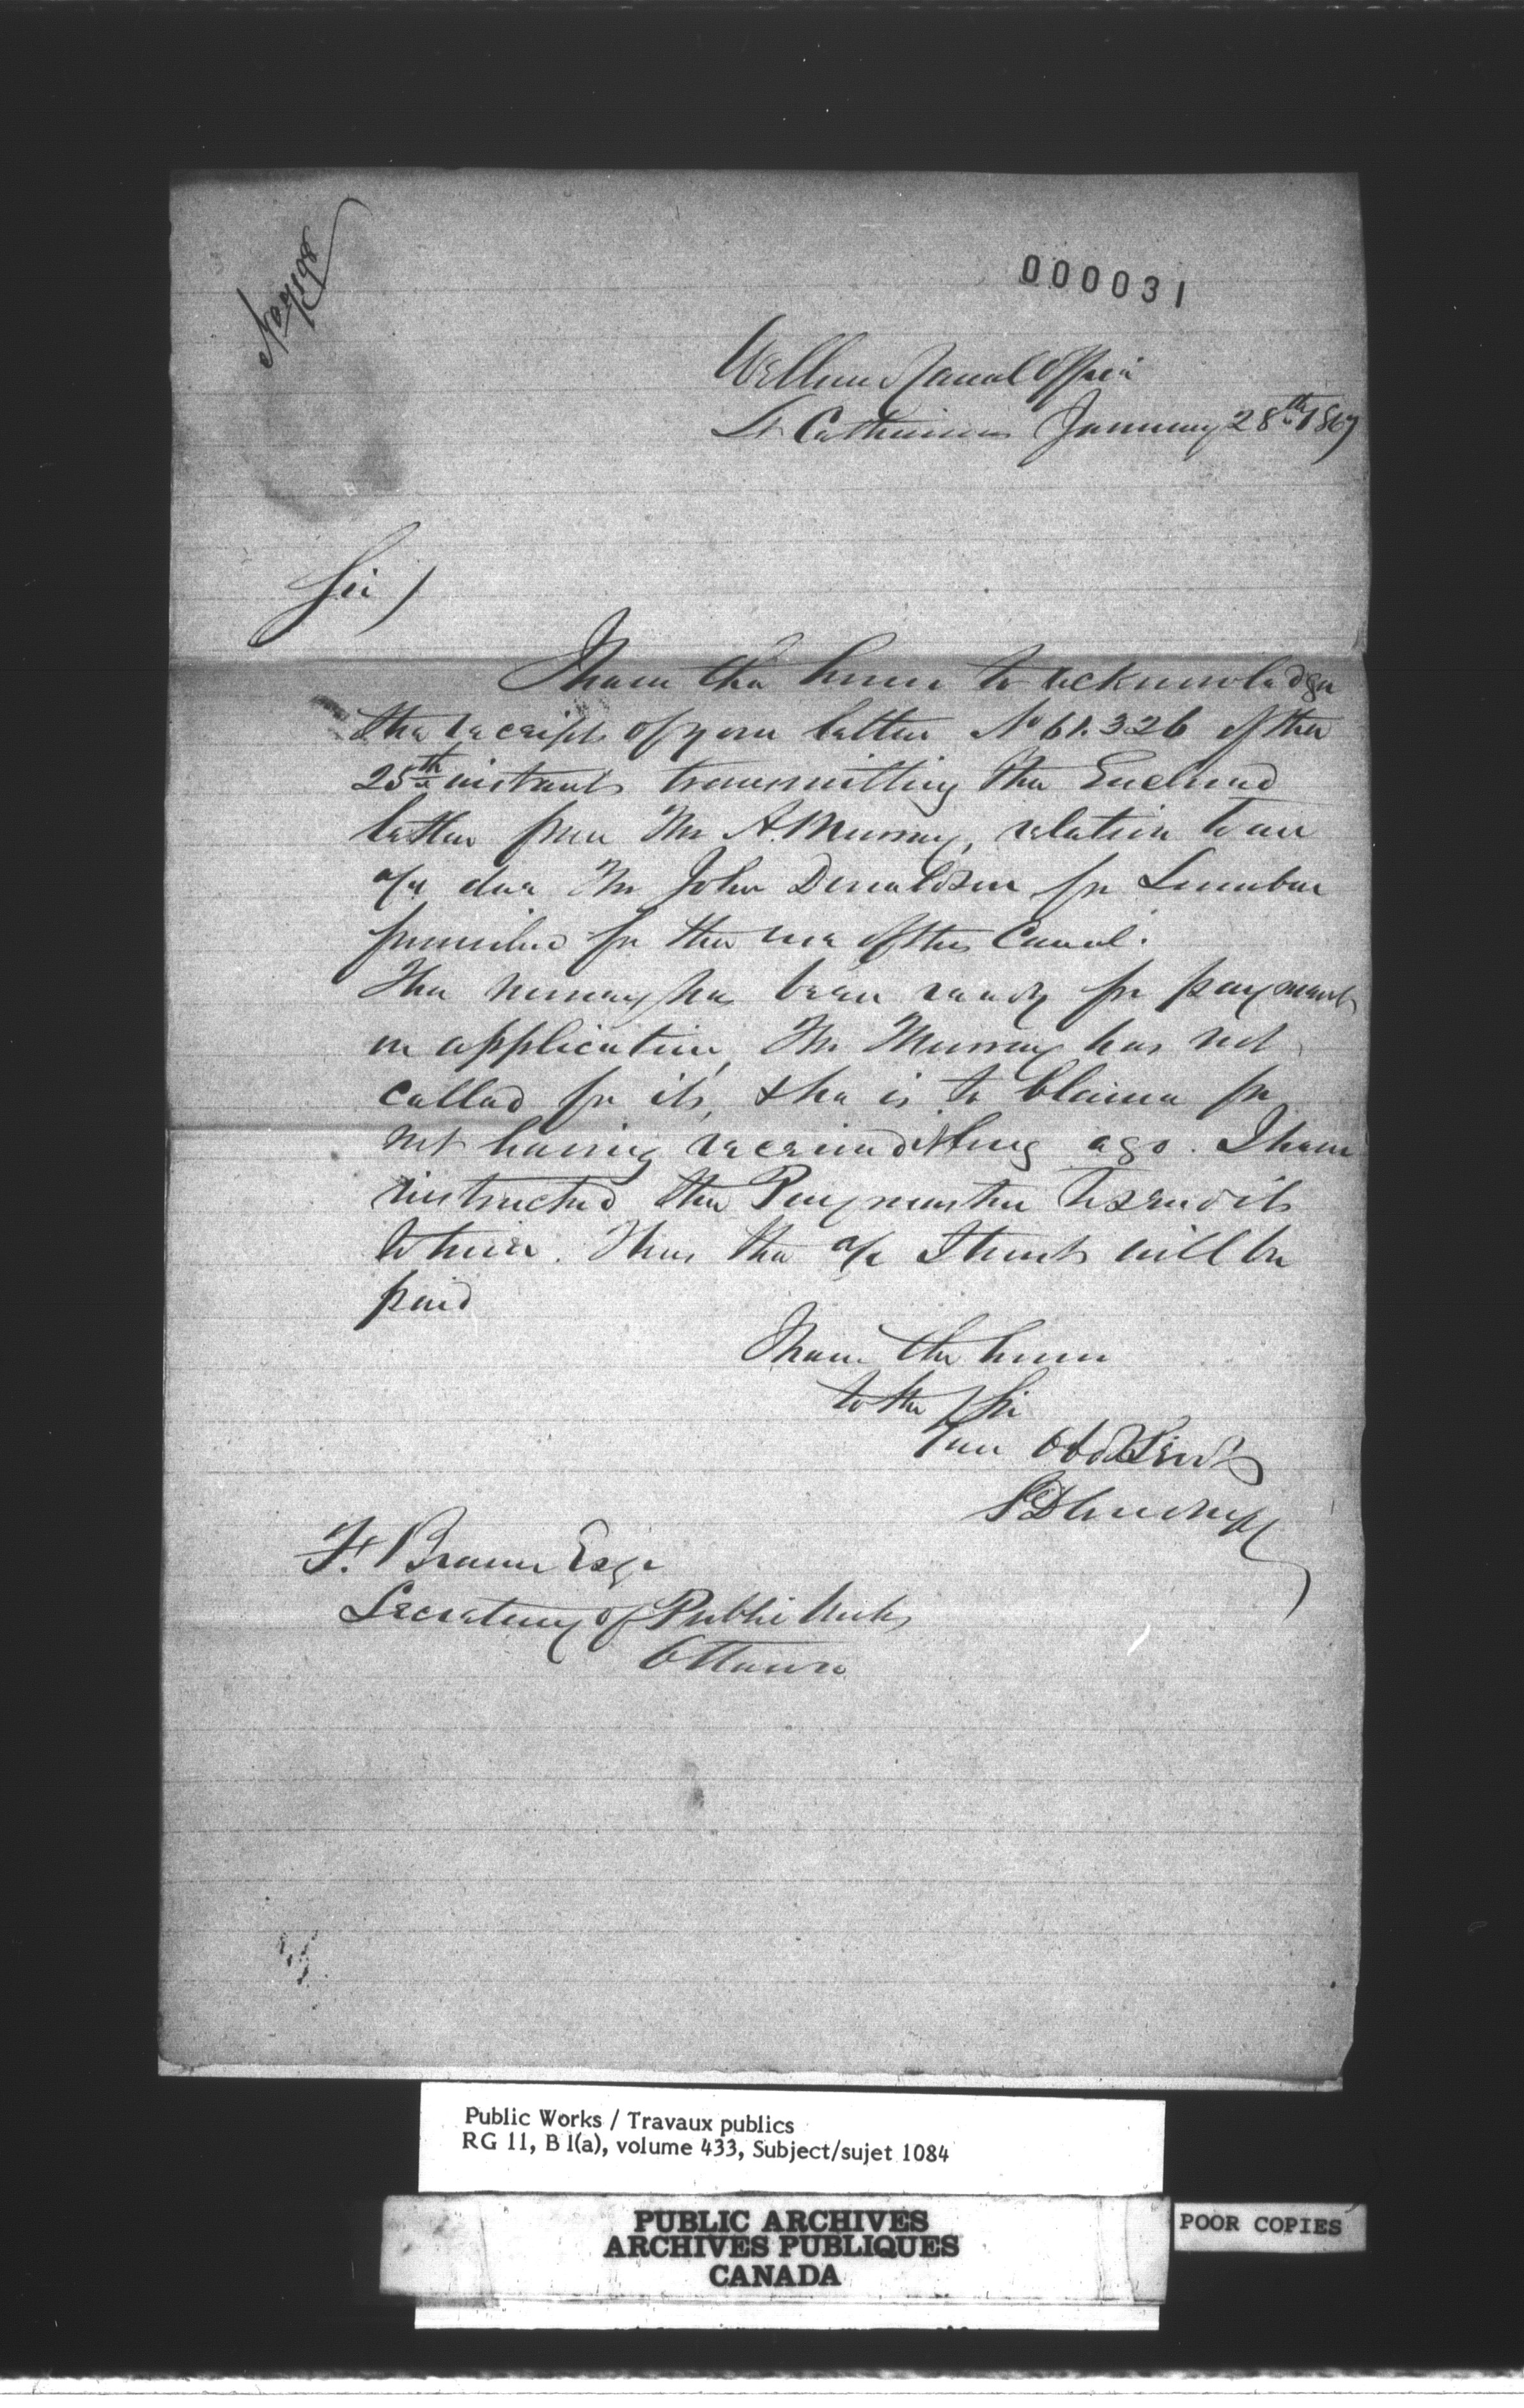 000031
Welland Canal Office
St Catharines January 28th 1867
Sir
I have the honor to acknowledge
the receipt of your letter No 61.326 of the
25th instant transmitting the Enclosed
letter from Mr A. Murray, relative to an
a/c due Mr John Donaldson for Lumber
furnished for the use of this Canal.
The money has been ready for payment
on application, Mr Murray has not
called for it, & he is to blame for
not having received it long ago. I have
instructed the Paymaster to send it
to him. Thus the a/c I trust will be
paid
I have the honor
to be Sir
Your Obdt Servt
F. Braun Esqr
Secretary of Public Works
Ottawa
Public Works / Travaux publics
RG 11, B 1(a), volume 433, Subject/sujet 1084
PUBLIC ARCHIVES
ARCHIVES PUBLIQUES
CANADA
POOR COPIES